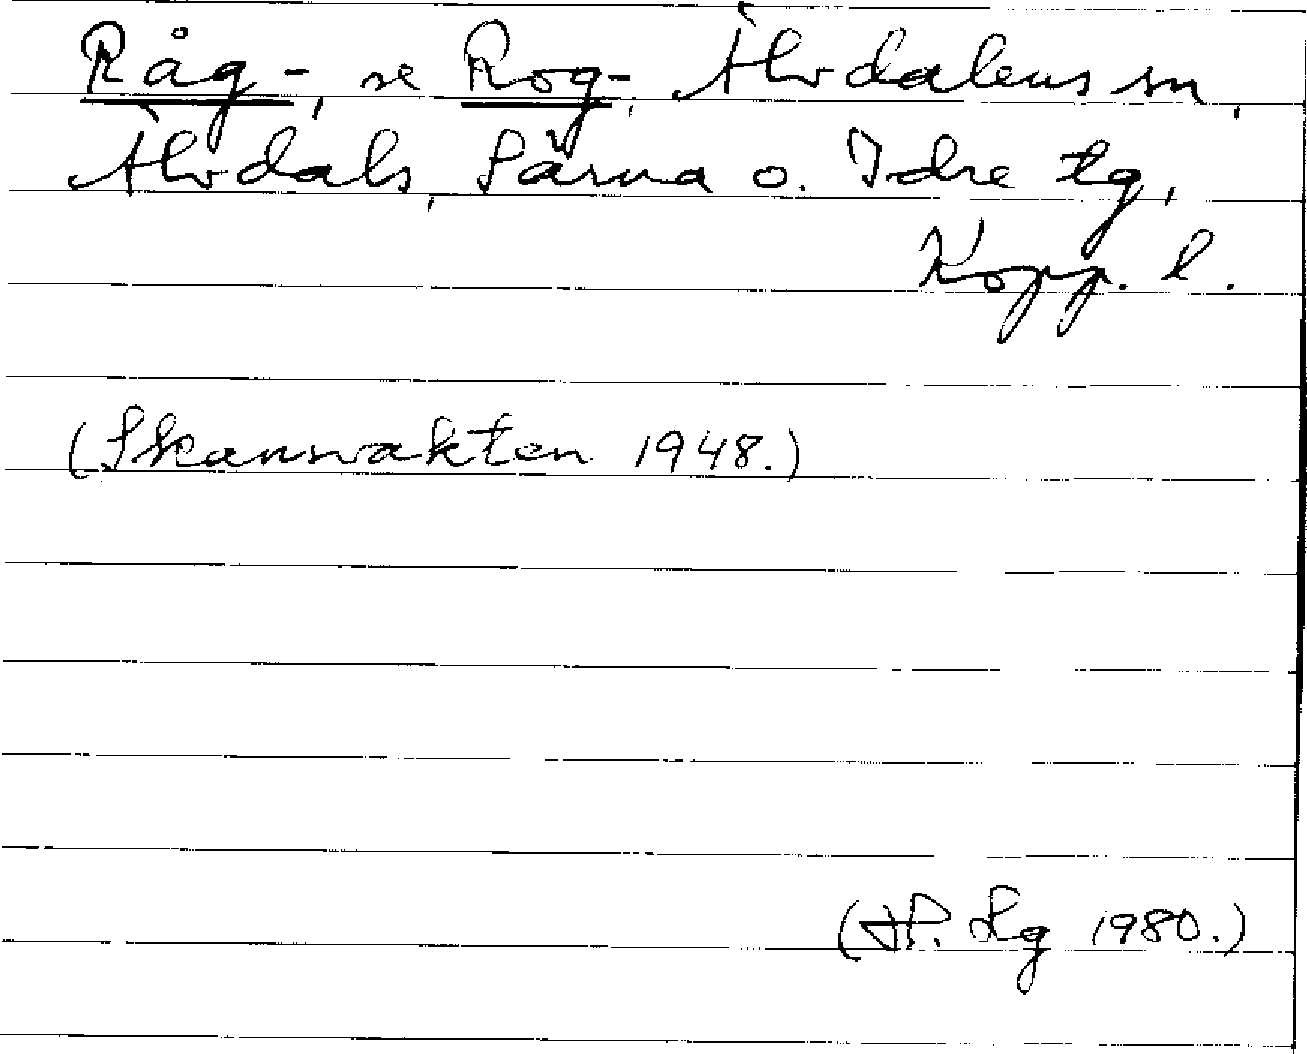 Råg-, se Rog-, Älvdalens sn,
Älvdals, Särna o. Idre tg,
Kopp. l.
(Skannvakten 1948.)
(H.P. Lg 1980.)